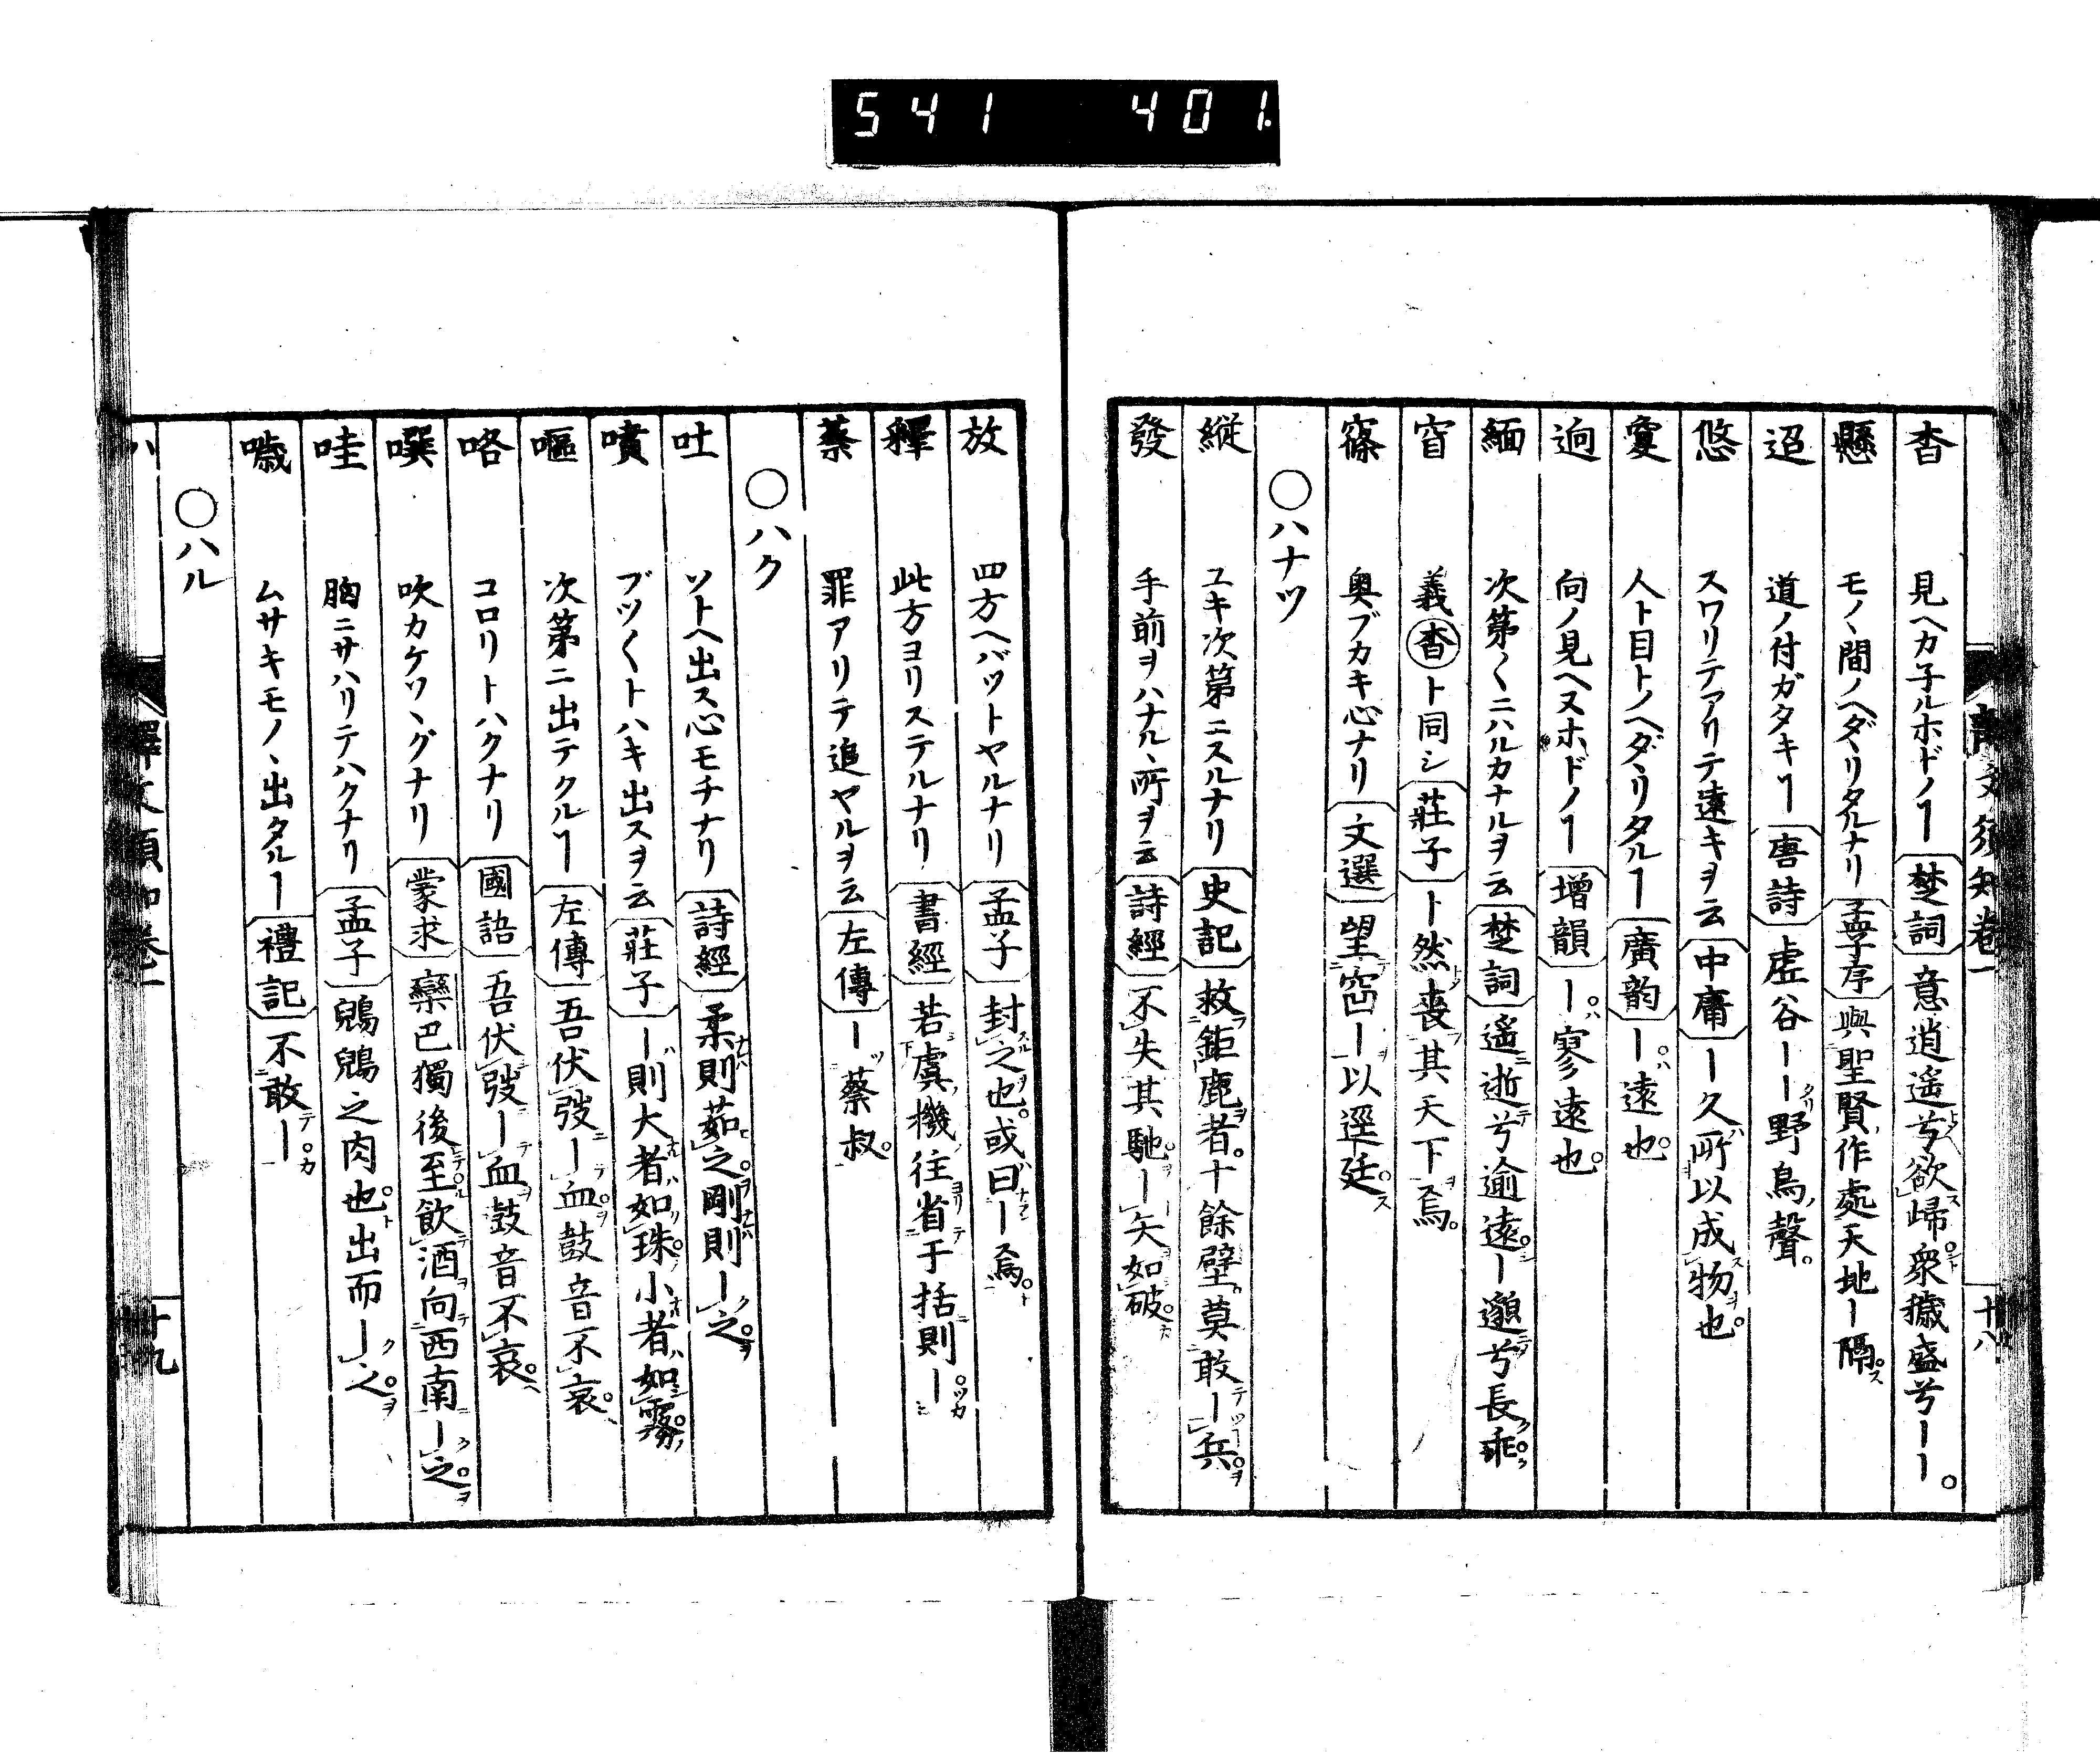 541 401
杳 見ヘカ子ルホドノヿ 楚詞 意逍遥兮欲歸衆穢盛兮ーー
懸 モノヽ間ノヘダヽリタルナリ 孟子序 與聖賢作處天地ー隔
迢 道ノ付ガタキヿ 唐詩 虚谷ーー野鳥聲
悠 スワリテアリテ遠キヲ云 中庸 ー久所以成物也
敻 人ト目トノヘダヽリタルヿ 廣韵 ー遠也
逈 向ノ見ヘヌホドノヿ 增韻 ー寥遠也
緬 次第〱ニハルカナルヲ云 楚詞 遥逝兮逾遠ー邈兮長乖
窅 義杳ト同シ 莊子 ー然喪其天下焉
窱 奥ブカキ心ナリ 文選 望ー以逕廷
○ハナツ
縦 ユキ次第ニスルナリ 史記 救鉅鹿者十餘壁莫敢ー兵
發 手前ヲハナルヽ所ヲ云 詩經 不失其馳ー矢如破
譯文須知卷一 十八
放 四方ヘバットヤルナリ 孟子 封之也或曰ー焉
釋 此方ヨリステルナリ 書經 若虞機往省于括則ー
蔡 罪アリテ追ヤルヲ云 左傳 ー蔡叔
○ハク
吐 ソトヘ出ス心モチナリ 詩經 柔則茹之剛則ー之
噴 ブツ〱トハキ出スヲ云 莊子 ー則大者如珠小者如霧
嘔 次第ニ出テクルヿ 左傳 吾伏弢ー血鼓音不衰
咯 コロリトハクナリ 國語 吾伏弢ー血鼓音不衰
噀 吹カケツヽグナリ 蒙求 欒巴獨後至飲酒向西南ー之
哇 胸ニサハリテハクナリ 孟子 鶃鶃之肉也出而ー之
噦 ムサキモノヽ出タルヿ 禮記 不敢ー
○ハル
ハ 譯文須知卷一 十九